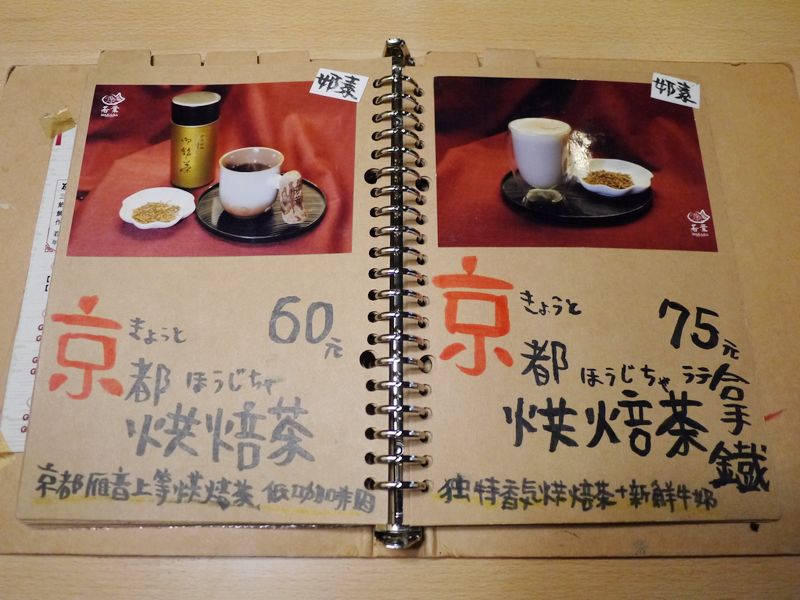 郰素
若葉
WAKABA
御銘茶
60元
きょうと
京都
ほうじちゃ
烘焙茶
京都雁音上等烘焙茶 低咖啡因
郰素
若葉
WAKABA
75元
きょうと
京都
ほうじちゃ ラテ
烘焙茶拿鐵
独特香気烘焙茶+新鮮牛奶